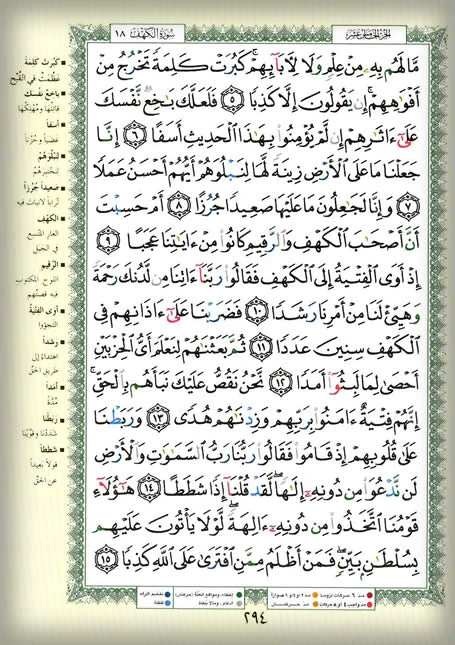 الجزء الخامس عشر
سورة الكهف ١٨
مَّا لَهُم بِهِۦ مِنْ عِلْمٍ وَلَا لِـَٔابَآئِهِمْ ۚ كَبُرَتْ كَلِمَةً تَخْرُجُ مِنْ
أَفْوَٰهِهِمْ ۚ إِن يَقُولُونَ إِلَّا كَذِبًا ٥ فَلَعَلَّكَ بَـٰخِعٌ نَّفْسَكَ
عَلَىٰٓ ءَاثَـٰرِهِمْ إِن لَّمْ يُؤْمِنُوا۟ بِهَـٰذَا ٱلْحَدِيثِ أَسَفًا ٦ إِنَّا
جَعَلْنَا مَا عَلَى ٱلْأَرْضِ زِينَةً لَّهَا لِنَبْلُوَهُمْ أَيُّهُمْ أَحْسَنُ عَمَلًا
٧ وَإِنَّا لَجَـٰعِلُونَ مَا عَلَيْهَا صَعِيدًا جُرُزًا ٨ أَمْ حَسِبْتَ
أَنَّ أَصْحَـٰبَ ٱلْكَهْفِ وَٱلرَّقِيمِ كَانُوا۟ مِنْ ءَايَـٰتِنَا عَجَبًا ٩
إِذْ أَوَى ٱلْفِتْيَةُ إِلَى ٱلْكَهْفِ فَقَالُوا۟ رَبَّنَآ ءَاتِنَا مِن لَّدُنكَ رَحْمَةً
وَهَيِّئْ لَنَا مِنْ أَمْرِنَا رَشَدًا ١٠ فَضَرَبْنَا عَلَىٰٓ ءَاذَانِهِمْ فِى
ٱلْكَهْفِ سِنِينَ عَدَدًا ١١ ثُمَّ بَعَثْنَـٰهُمْ لِنَعْلَمَ أَىُّ ٱلْحِزْبَيْنِ
أَحْصَىٰ لِمَا لَبِثُوٓا۟ أَمَدًا ١٢ نَّحْنُ نَقُصُّ عَلَيْكَ نَبَأَهُم بِٱلْحَقِّ ۚ
إِنَّهُمْ فِتْيَةٌ ءَامَنُوا۟ بِرَبِّهِمْ وَزِدْنَـٰهُمْ هُدًى ١٣ وَرَبَطْنَا
عَلَىٰ قُلُوبِهِمْ إِذْ قَامُوا۟ فَقَالُوا۟ رَبُّنَا رَبُّ ٱلسَّمَـٰوَٰتِ وَٱلْأَرْضِ
لَن نَّدْعُوَا۟ مِن دُونِهِۦٓ إِلَـٰهًا ۖ لَّقَدْ قُلْنَآ إِذًا شَطَطًا ١٤ هَـٰٓؤُلَآءِ
قَوْمُنَا ٱتَّخَذُوا۟ مِن دُونِهِۦٓ ءَالِهَةً ۖ لَّوْلَا يَأْتُونَ عَلَيْهِم
بِسُلْطَـٰنٍۭ بَيِّنٍ ۖ فَمَنْ أَظْلَمُ مِمَّنِ ٱفْتَرَىٰ عَلَى ٱللَّهِ كَذِبًا ١٥
كَبُرَتْ كَلِمَةً
عَظُمَتْ في القُبْح
باخِعٌ نَفسَك
قاتِلُها ومُهْلِكُها
أسَفاً
غضباً وحُزْناً
لِنَبْلُوَهُمْ
لِنَخْتَبِرَهُمْ
صعيداً جُرُزاً
تُراباً لا نبات فيه
الكهْف
الغار المُتّسِع
في الجبل
الرَّقيم
اللوح المكتوب
فيه قصتُهم
أوى الفتيَةُ
التجؤوا
رَشَداً
اهتداءً إلى
طريق الحقّ
أمَداً
مُدّة
رَبطْنا
شددْنا وقوّينا
شَطَطاً
قولاً بعيداً
عن الحقّ
مدّ ٦ حركات لزوماً
مدّ ٢ أو ٤ أو ٦ جوازاً
مدّ واجب ٤ أو ٥ حركات
مدّ حركتان
إخفاء، ومواقع الغُنّة (حركتان)
ادغام، وما لا يُلفظ
تفخيم الراء
قلقلة
٢٩٤